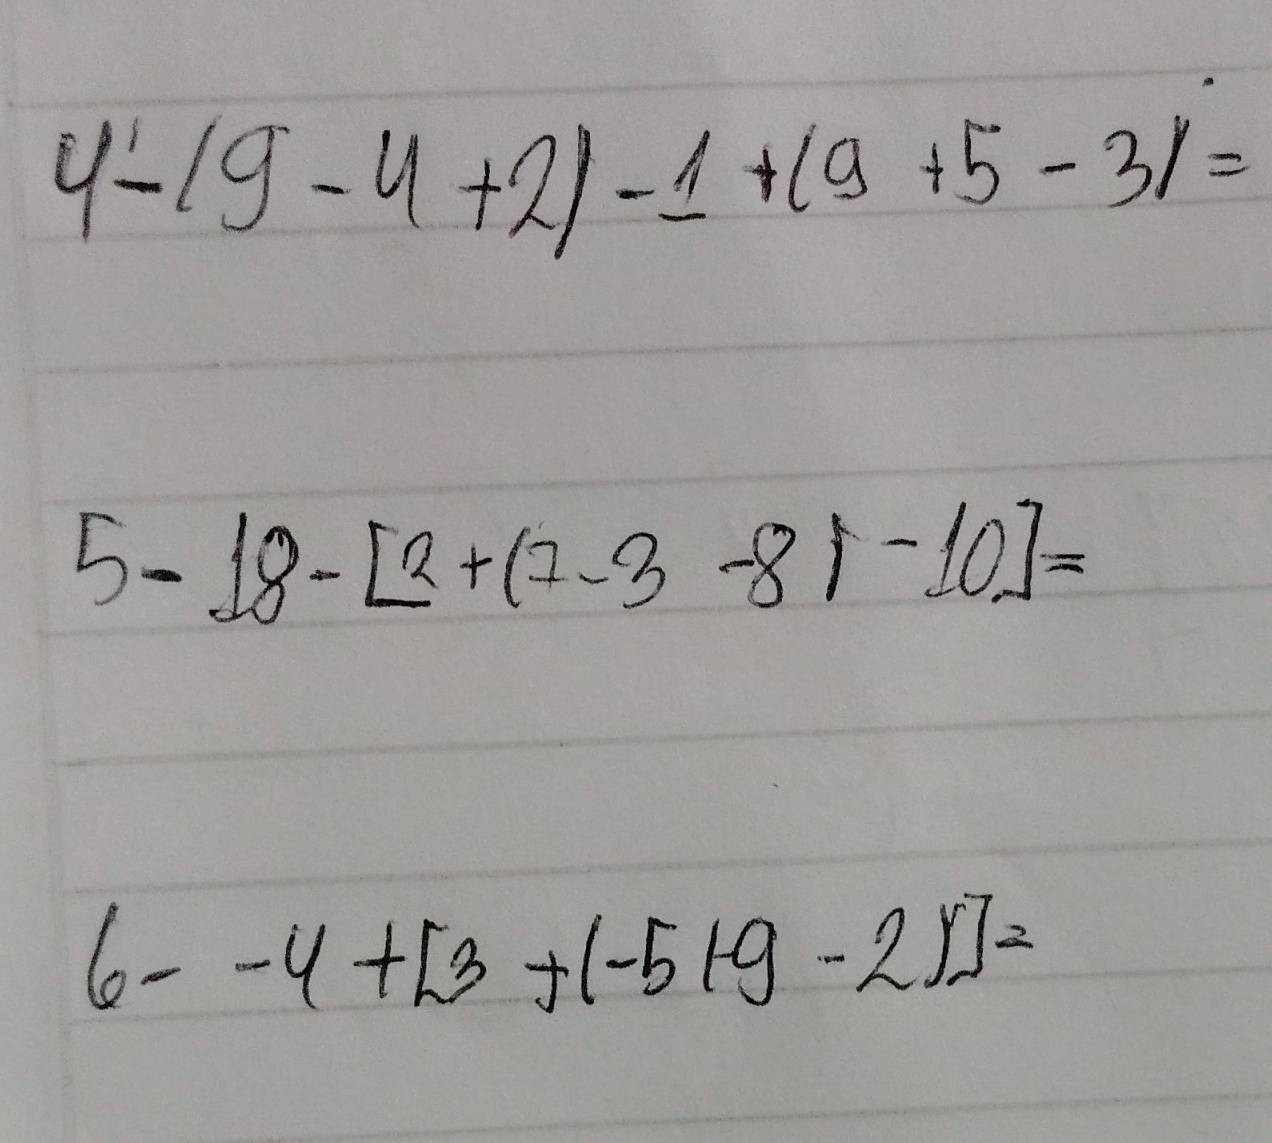 4-(9-4+2)-1+(9+5-3)=
5-18-[2+(7-3-8)-10]=
6--4+[3+(-5+9-2)]=